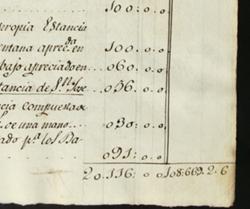 100: o. o
propia Estancia
entana apreda en 100: o. o
bajo apreciado en 060: o. o
stancia de Sn Jose 056: o. o
cia compuesta
de una mano 030: o. o
ado pa los Ba-
091: o. o
20.116: o o 108:669.2.6